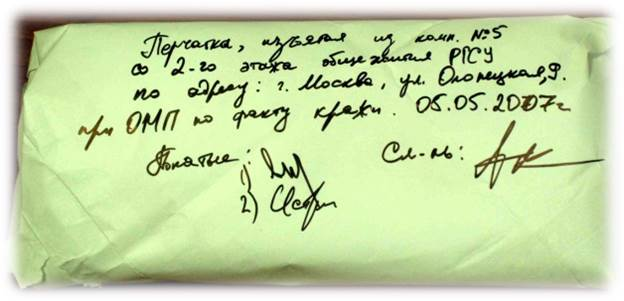 Перчатка, изъятая из комн. №5
со 2-го этажа общежития РГСУ
по адресу: г. Москва, ул. Олонецкая,
при ОМП по факту кражи. 05.05.2007г
Понятые: Сл-ль:
1)
2)